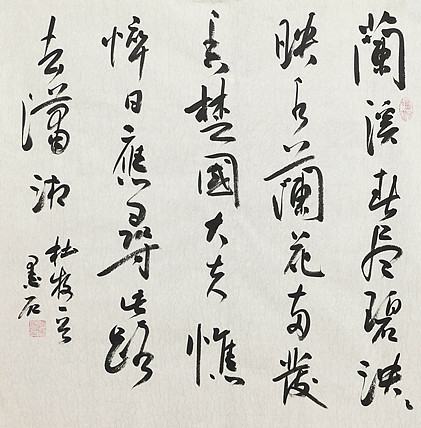 蘭溪春尽碧泱々
映水蘭花雨發
香楚國大夫憔
悴日應尋此路
去瀟湘
杜牧
墨石